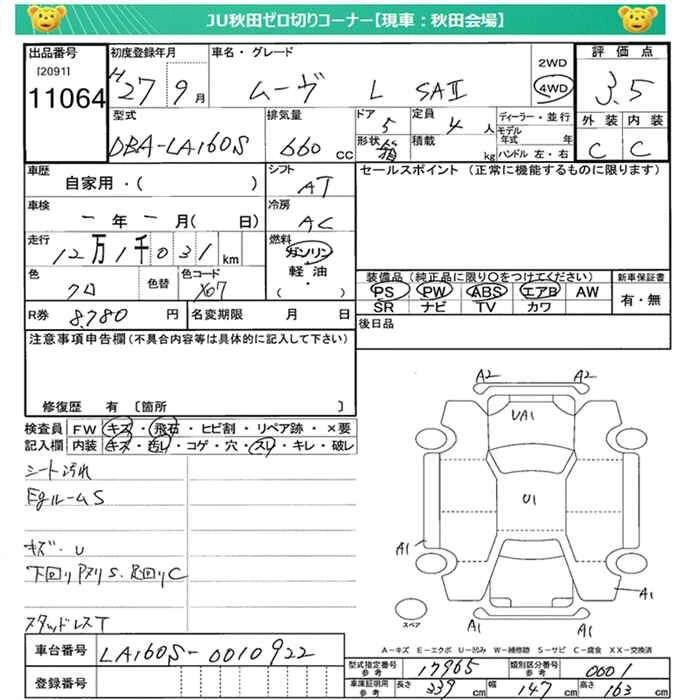 JU秋田ゼロ切りコーナー【現車：秋田会場】
出品番号
[2091]
11064
初度登録年月
H27 9月
車名・グレード
ムーヴ L SAⅡ
2WD
4WD
評価点
3.5
外装 内装
C C
型式
DBA-LA160S
排気量
660 cc
ドア 5
形状 箱
定員 4 人
積載 kg
ディーラー・並行
モデル年式 年
ハンドル 左・右
車歴
自家用・( )
シフト
AT
車検
ー年ー月( 日)
冷房
AC
走行
12万1千031km
燃料
ガソリン
軽油
( ・ )
色
クロ
色替
色コード
X07
R券 8.780 円
名変期限 月 日
セールスポイント（正常に機能するものに限ります）
装備品（純正品に限り○をつけてください）
PS PW ABS エアB AW
SR ナビ TV カワ
新車保証書
有・無
後日品
注意事項申告欄(不具合内容等は具体的に記入して下さい)
修復歴 有〔箇所 〕
検査員記入欄
FW キズ・飛石・ヒビ割・リペア跡・×要
内装 キズ・汚レ・コゲ・穴・スレ・キレ・破レ
シート汚れ
EgルームS
キズ・U
下回りPヌリS、R回りC
スタッドレスT
A2 A2
UA1
U1
A1
A1
A1 A1
スペア
A－キズ E－エクボ U－凹み W－補修跡 S－サビ C－腐食 XX－交換済
車台番号
LA160S-0010922
登録番号
型式指定番号 参考 17965
類別区分番号 参考 0001
車庫証明用 参考 長さ 339 cm 幅 147 cm 高さ 163 cm